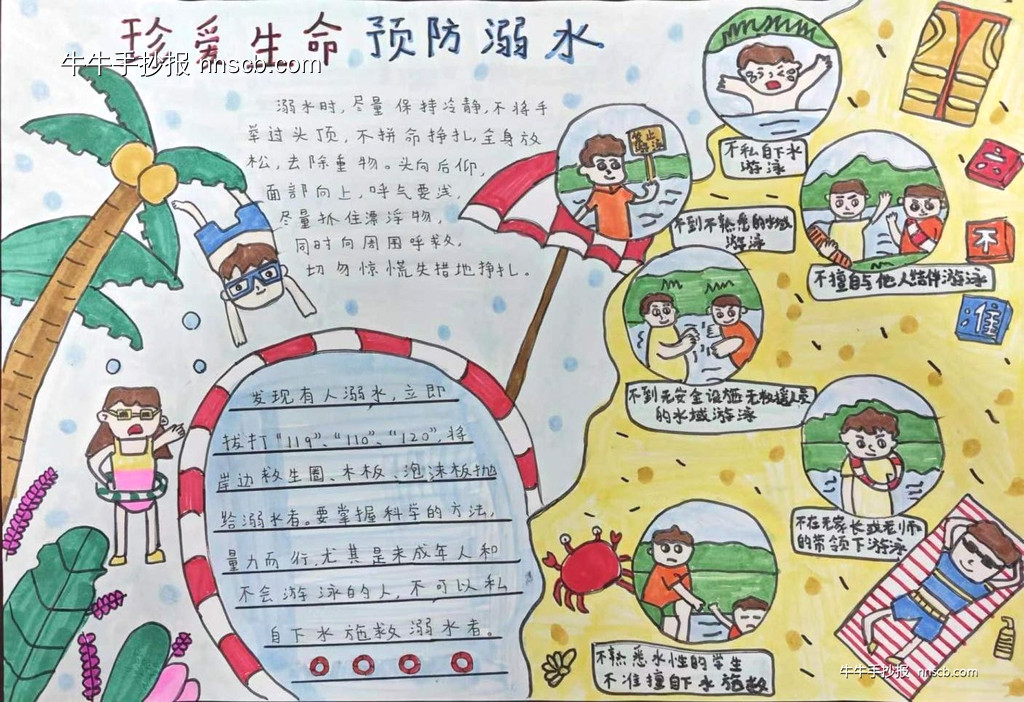 珍爱生命 预防溺水
牛牛手抄报 nnscb.com
溺水时,尽量保持冷静,不将手
举过头顶,不拼命挣扎,全身放
松,去除重物。头向后仰,
面部向上,呼气要浅,
尽量抓住漂浮物,
同时向周围呼救。
切勿惊慌失措地挣扎。
发现有人溺水,立即
拔打“119”、“110”、“120”,将
岸边救生圈、木板、泡沫板抛
给溺水者。要掌握科学的方法,
量力而行,尤其是未成年人和
不会游泳的人,不可以私
自下水施救溺水者。
禁止
游泳
不私自下水
游泳
不到不熟悉的水域
游泳
不擅自与他人结伴游泳
不到无安全设施无救援人员
的水域游泳
不在无家长或老师
的带领下游泳
不熟悉水性的学生
不准擅自下水施救
六
不
准
牛牛手抄报 nnscb.com